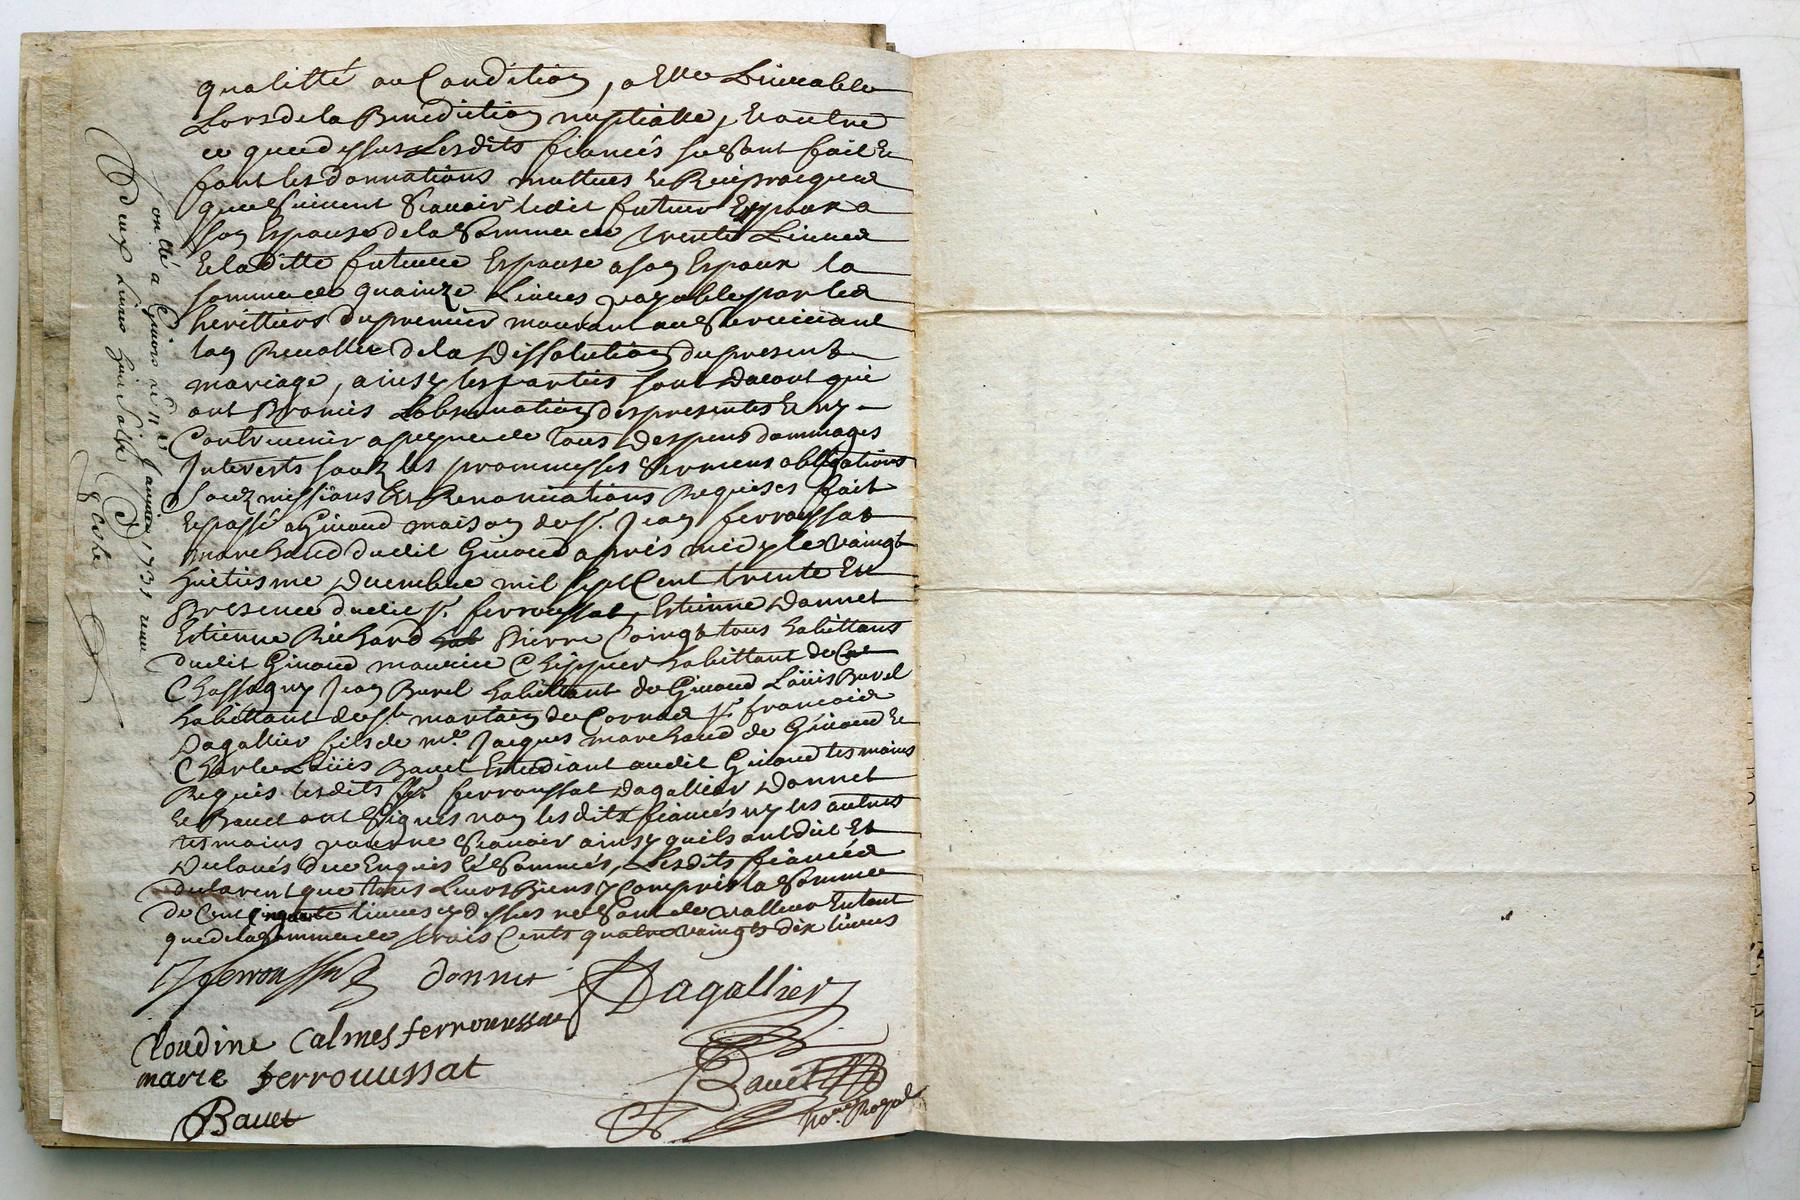 qualitté ou Condition, a Elle Livrable
Lors de la Benediction nuptialle, Et outre
ce que dessus Lesdits fiancés se sont fait Et
font les donnations mutues Et Reciproques
que suivent Scavoir ledit futur Espoux a
son Espouse de la Somme de trente Livres
Et laditte future Espouse a son Espoux la
somme de quainze Livres payable par les
herittiers du premier mourant au Surviciant
lors de la Dissolution du present
mariage, ainsy les parties sont Dacort qui
ont Promis Lobservation des presentes Et ny
Contrevenir a peyne de tous Despens dommages
Interests soubz les promesses Sermens obligations
soubzmissions Et Renonciations Requises fait
Et passé a Givord maison du sr. Jean ferroussat
marchand dudit Givord apres midy le vaingt
huitiesme Decembre mil sept Cent trente En
Presence dudit sr. ferroussat, Estienne Donnet
Estienne Richard Pierre Coingt tous habittans
dudit Givord maurice Chippier habittant de
Chassagny Jean Burel habittant de Givord Loüis Burel
habittant de St. martain de Cornas sr. francois
Dagallier fils de me. Jacques marchand de Givord Et
Charle Loüis Bauet Estudiant audit Givord tesmoins
Requis lesdits srs. ferroussat Dagallier Donnet
Et Bauet ont Signés non lesdits fiancés ny les autres
tesmoins pour ne Scavoir ainsy quils ont dit Et
Declarés de ce Enquis Et Sommés, Lesdits fiancés
declarent que tous Leurs Biens y Compris la Somme
de Cent Cinquante livres cy dessus ne sont de valleur Entout
que de la Somme de trois Cents quatre vaingts dix livres
Jferroussat donnet Dagallier
Cloudine Calmes ferrouussat
marie ferrouussat
Bauet
Bauet
No.re Royal
Conllé a Givors le 11e Janvier 1731 receu
Deux Livres huit Sols